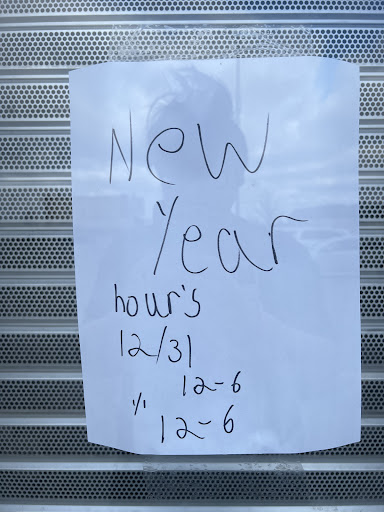 New
Year
hour's
12/31
12-6
1/1
12-6